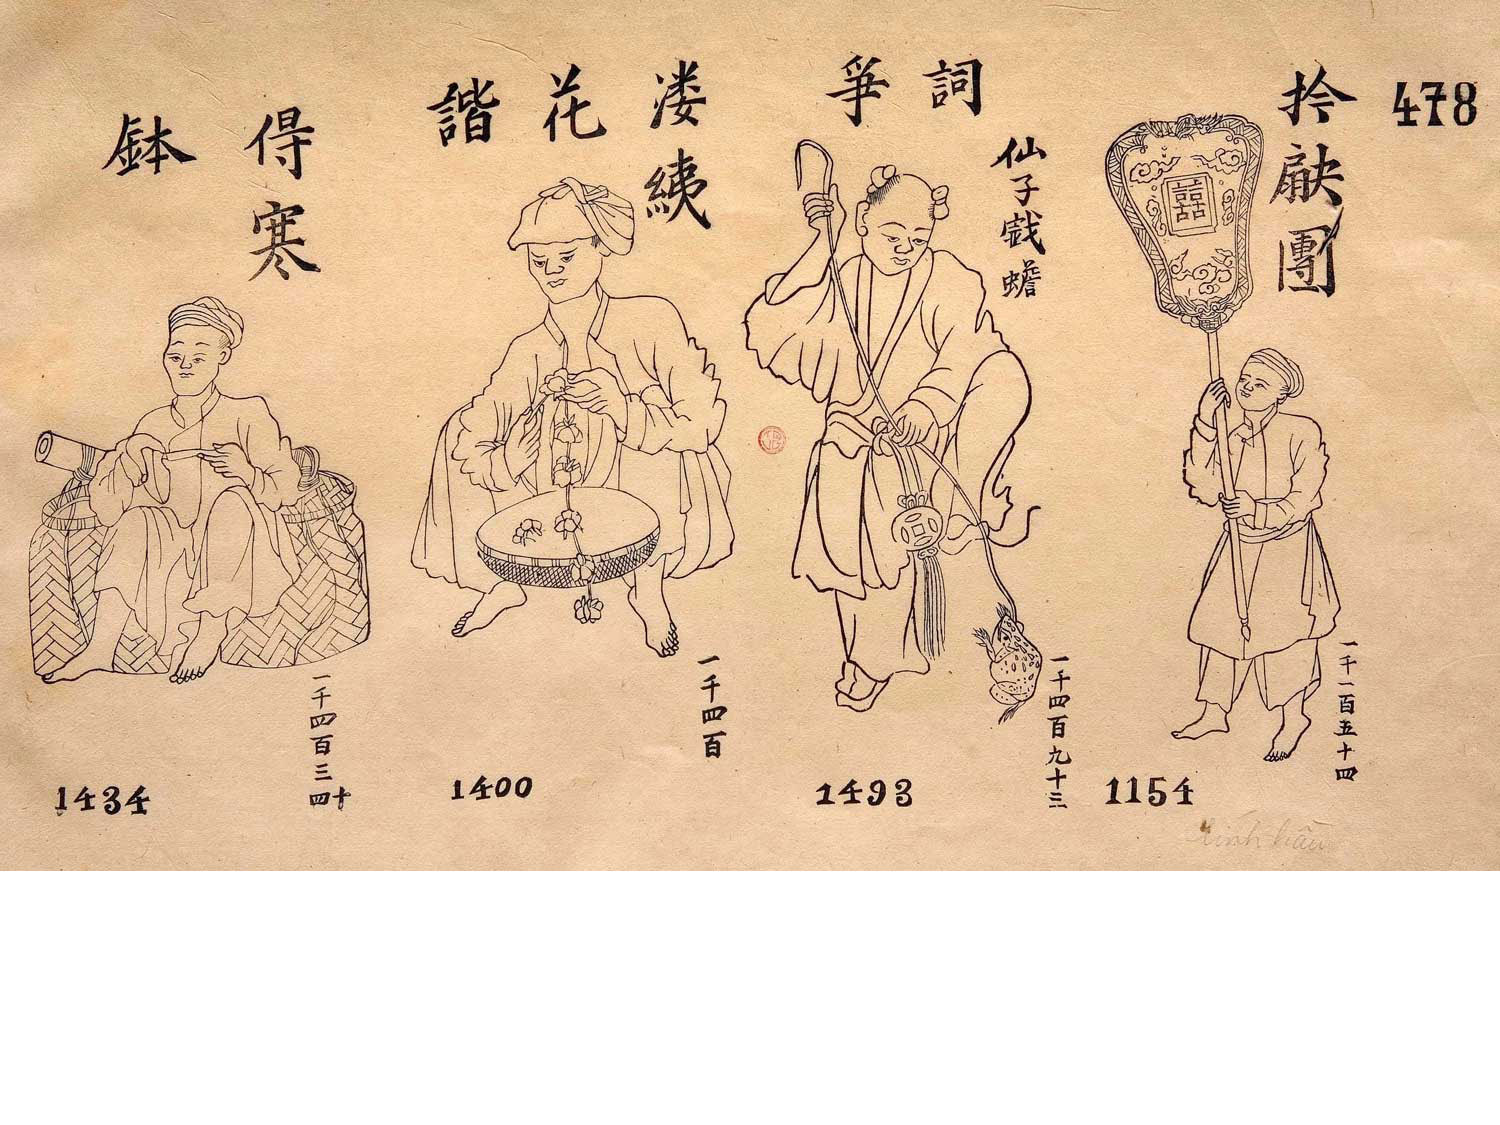 478
拎𦑗團
一千一百五十四
1154
詞爭
仙子戱蟾
一千四百九十三
1493
花諧
一千四百
1400
得寒
鉢
一千四百三十四
1434